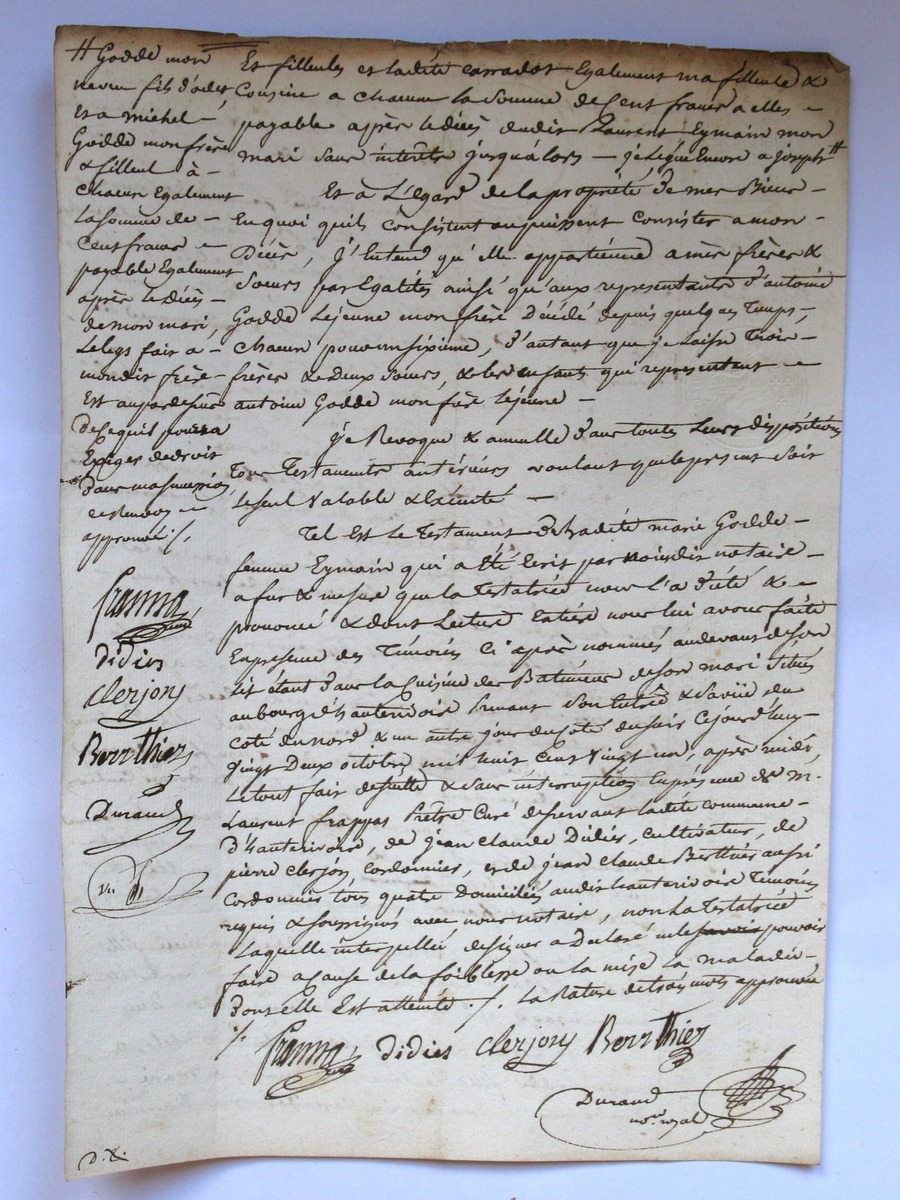 Et filleules et ladite carradot Egalement ma filleule &
Cousine a chacune la Somme de Cent francs a elles =
payable après le décès dudit Laurent Eymain mon
mari sans intérêts jusqu'alors — je Lègue Encore a joseph #
Et a L'Egard de la propriété de mes Biens -
En quoi quils Consistent ou puissent Consister a mon -
Décès, j'Entend qu'elle appartienne a mes frères &
Soeurs par Egalités ainsi qu'aux representants d'antoine
Godde Lejeune mon frère Décédé depuis quelques Temps,
chacun pour un sixième, d'autant que je Laisse Trois -
frères & Deux Soeurs, & les enfants qui representent =
antoine Godde mon frère Lejeune —
je Revoque & annulle dans toutes Leurs dispositions
tous Testaments antérieurs voulant que le present Soit
le seul Valable & Exécuté —
Tel Est le Testament de ladite marie Godde -
femme Eymain qui a Eté Ecrit par nous dit notaire -
a fur & mesure que la Testatrice nous l'a dicté & =
prononcé & dont Lecture Entière nous lui avons faite
En presence des Témoins Ci après nommés au devant de son
lit étant dans la Cuisine des Batiments de son mari Situés
au bourg d'hauterivoire prenant Son Entrée & Sa vüe du
coté du nord & un autre jour du coté du soir Cejourd'huy
Vingt Deux octobre mil huit Cent Vingt un, après midi,
Le tout fait de suitte & Sans interruption En presence de M.
Laurent frappas Prêtre Curé desservant ladite commune -
d'hauterivoire, de jean Claude Didier, Cultivateur, de
pierre Clerjon, Cordonnier, et de jean Claude Berthier aussi
Cordonnier tous quatre Domiciliés audit hauterivoire Témoins
requis & soussignés avec nous notaire, non La Testatrice
Laquelle interpellée de signer a Déclaré ne le pouvoir
faire a Cause de la foiblesse ou la mise La maladie -
dont elle Est atteinte ./. La Rature de trois mots approuvée
./.
# Godde mon
neveu fils d'odet
et a michel -
Godde mon frère
& filleul à -
chacun Egalement
la somme de -
Cent francs =
payable Egalement
après le décès -
de mon mari,
Le legs fait a -
mondit frère -
Est au pardessus
de ce quil pourra
Exiger de droit
dans ma succession,
ce Renvoy =
approuvé ./.
Didier
Clerjon
Berrthier
Durand
Didier Clerjon Berrthier
Durand
no.re royal